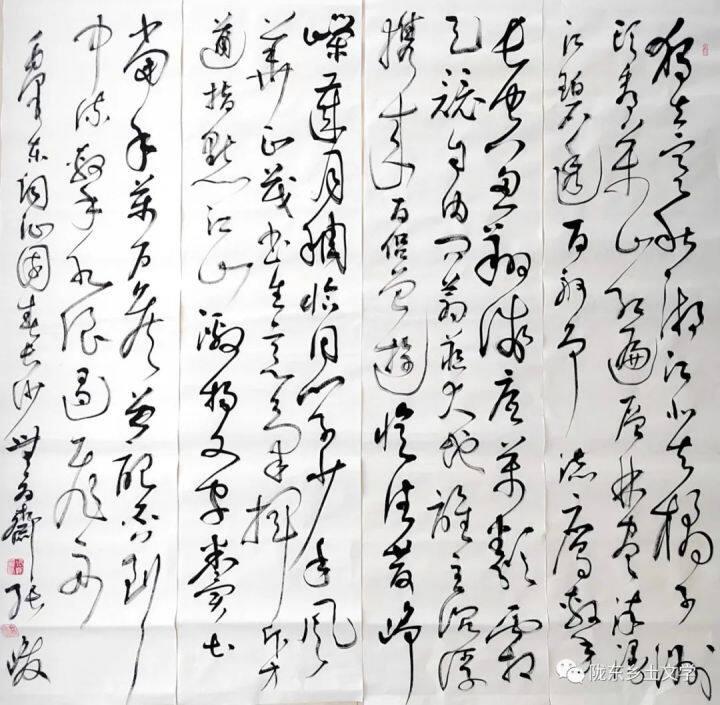 独立寒秋湘江北去橘子洲
头看万山红遍层林尽染漫
江碧透百舸争流鹰击
长空鱼翔浅底万类霜
天竞自由问苍茫大地谁主沉浮
携来百侣曾游忆往昔峥
嵘岁月稠恰同学少年风
华正茂书生意气挥斥方
遒指点江山激扬文字粪土
当年万户侯曾记否到
中流击水浪遏飞舟
毛泽东词沁园春长沙 张
陇东乡土文学